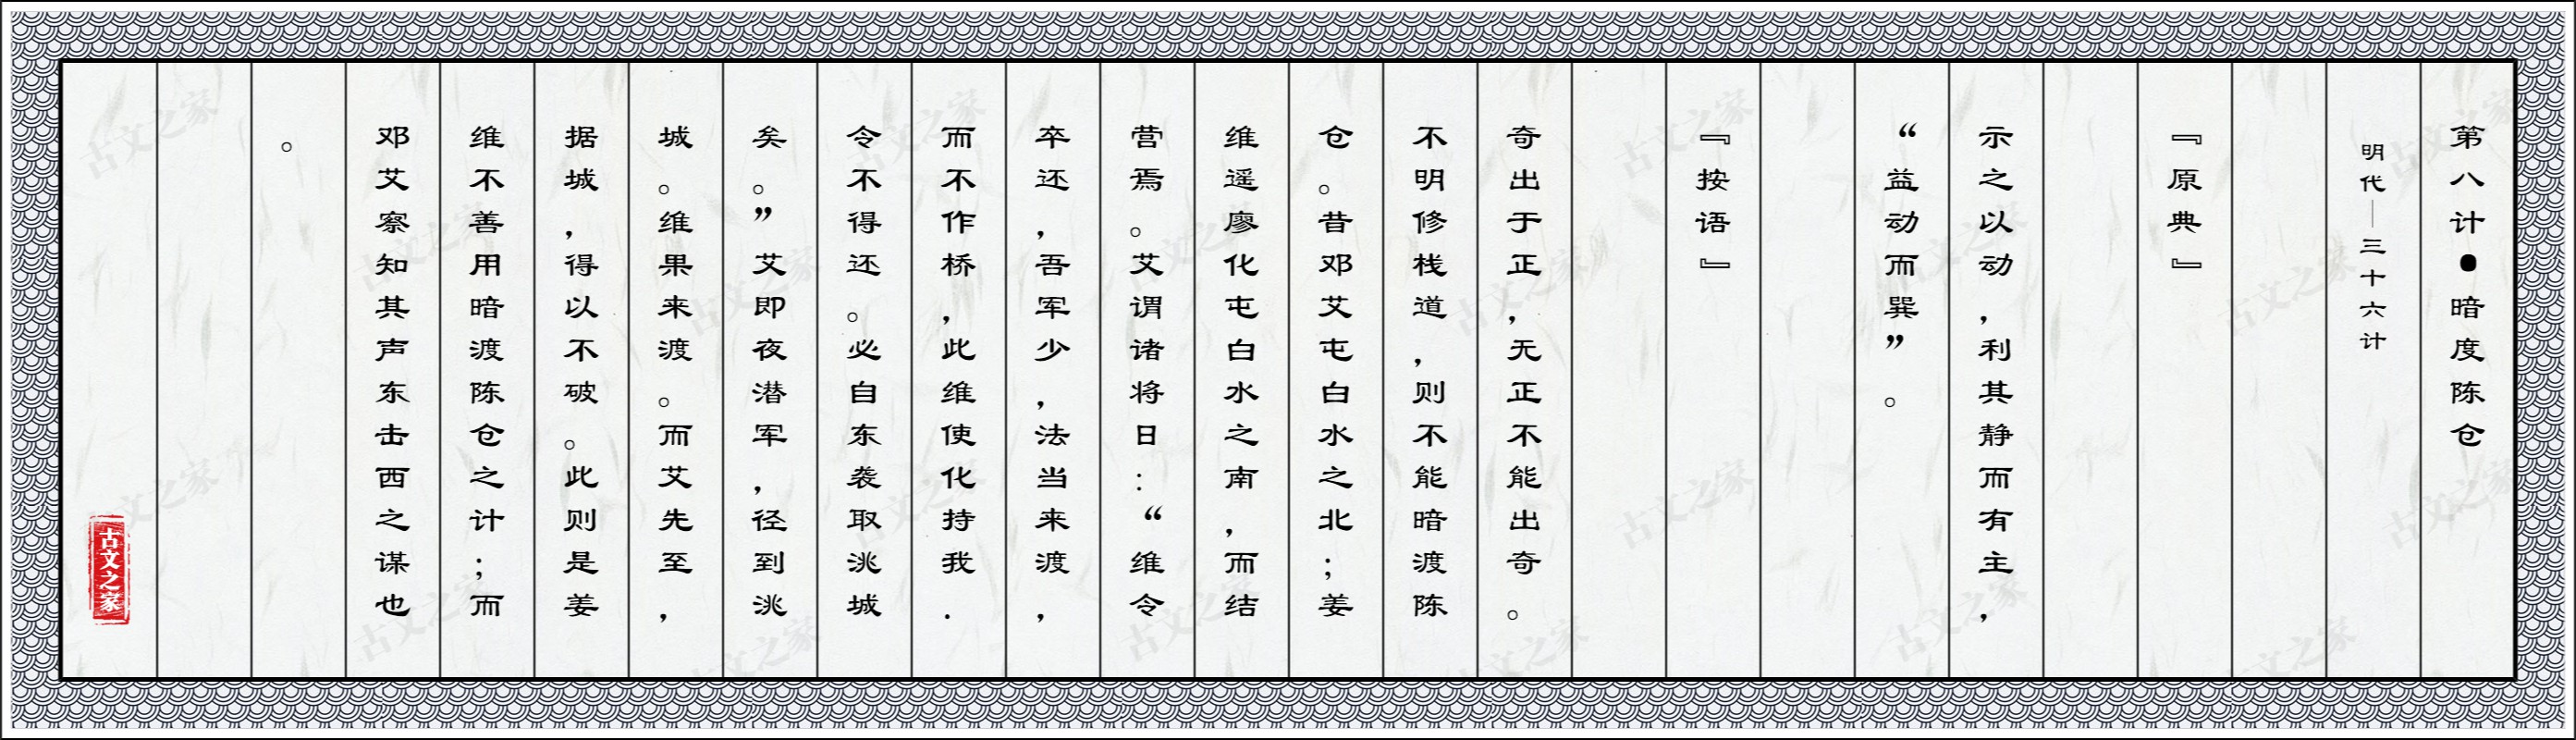 第八计●暗度陈仓
明代—三十六计
『原典』
示之以动，利其静而有主，
“益动而巽”。
『按语』
奇出于正，无正不能出奇。
不明修栈道，则不能暗渡陈
仓。昔邓艾屯白水之北；姜
维遥廖化屯白水之南，而结
营焉。艾谓诸将日：“维令
卒还，吾军少，法当来渡，
而不作桥，此维使化持我．
令不得还。必自东袭取洮城
矣。”艾即夜潜军，径到洮
城。维果来渡。而艾先至，
据城，得以不破。此则是姜
维不善用暗渡陈仓之计；而
邓艾察知其声东击西之谋也
。
古文之家